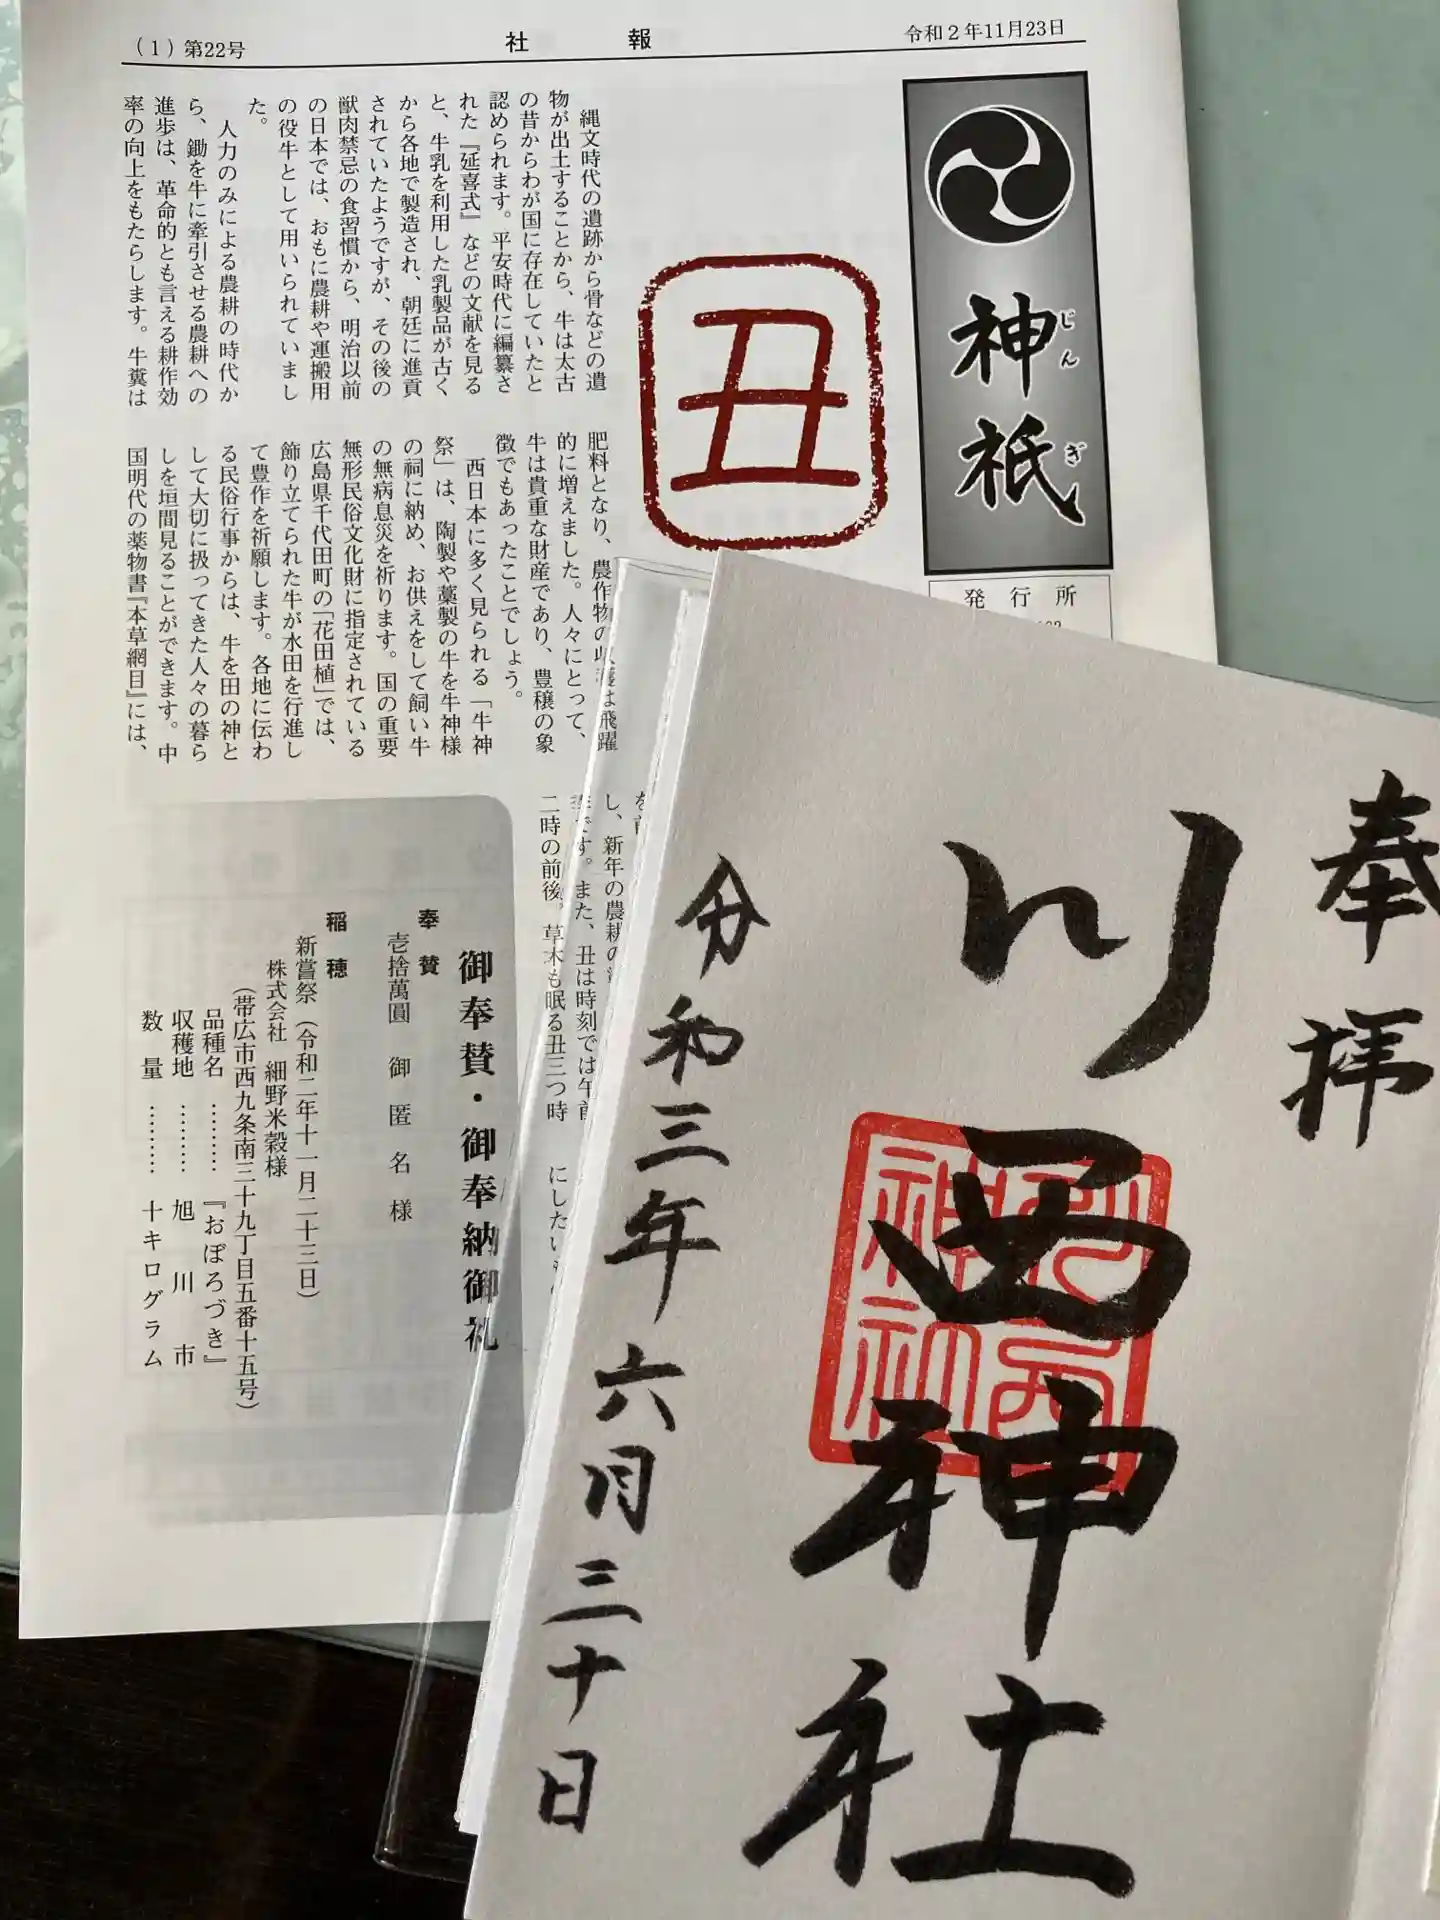 (1)第22号
社報
令和2年11月23日
神祇
じんぎ
発行所
丑
縄文時代の遺跡から骨などの遺
物が出土することから、牛は太古
の昔からわが国に存在していたと
認められます。平安時代に編纂さ
れた『延喜式』などの文献を見る
と、牛乳を利用した乳製品が古く
から各地で製造され、朝廷に進貢
されていたようですが、その後の
獣肉禁忌の食習慣から、明治以前
の日本では、おもに農耕や運搬用
の役牛として用いられていまし
た。
人力のみによる農耕の時代か
ら、鋤を牛に牽引させる農耕への
進歩は、革命的とも言える耕作効
率の向上をもたらします。牛糞は
肥料となり、農作物の収穫は飛躍
的に増えました。人々にとって、
牛は貴重な財産であり、豊穣の象
徴でもあったことでしょう。
西日本に多く見られる「牛神
祭」は、陶製や藁製の牛を牛神様
の祠に納め、お供えをして飼い牛
の無病息災を祈ります。国の重要
無形民俗文化財に指定されている
広島県千代田町の「花田植」では、
飾り立てられた牛が水田を行進し
て豊作を祈願します。各地に伝わ
る民俗行事からは、牛を田の神と
して大切に扱ってきた人々の暮ら
しを垣間見ることができます。中
国明代の薬物書『本草網目』には、
し、新年の農耕の
です。また、丑は時刻では午前
二時の前後。草木も眠る丑三つ時
にしたい
御奉賛・御奉納御礼
奉賛
壱捨萬圓 御匿名様
稲穂
新嘗祭(令和二年十一月二十三日)
株式会社 細野米穀様
(帯広市西九条南三十九丁目五番十五号)
品種名………『おぼろづき』
収穫地………旭川市
数量………十キログラム
奉拝
川西神社
川西神社
令和三年六月三十日